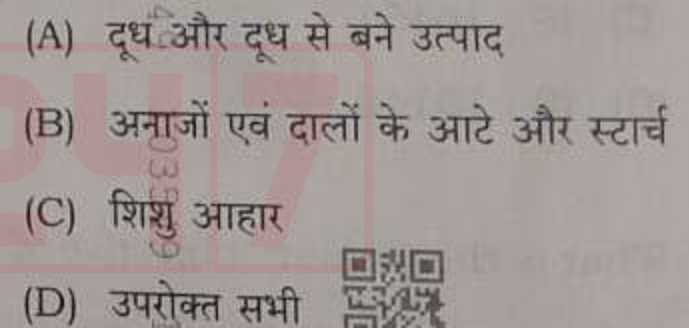 (A) दूध और दूध से बने उत्पाद
(B) अनाजों एवं दालों के आटे और स्टार्च
(C) शिशु आहार
(D) उपरोक्त सभी